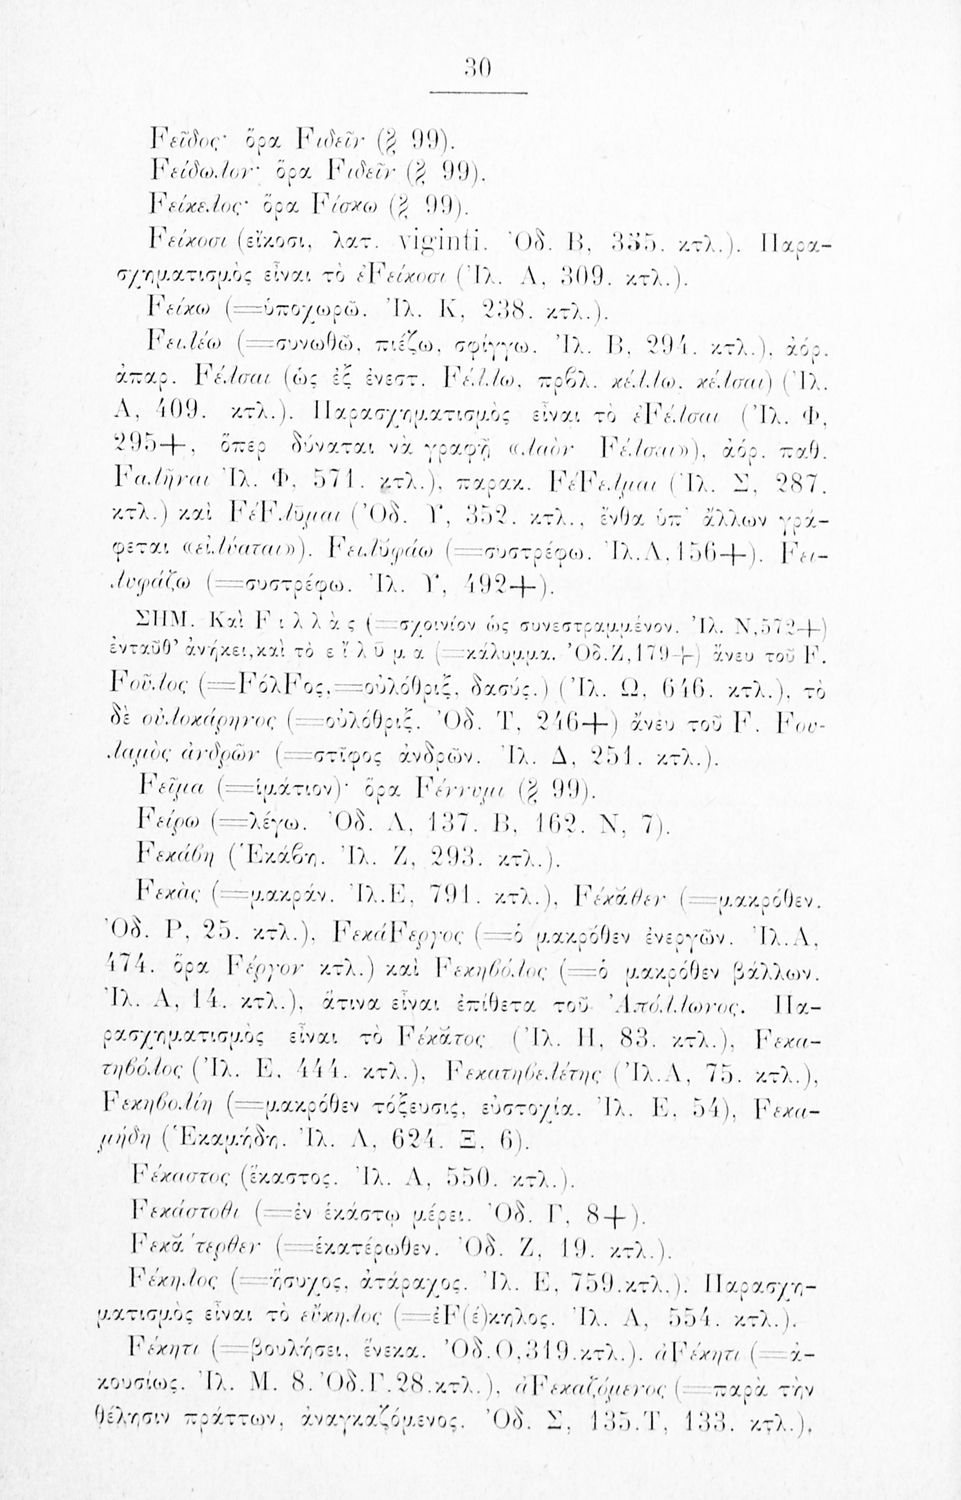 30
Fεῖδος· ὅρα Fιδεῖν (§ 99).
Fείδωλον· ὅρα Fιδεῖν (§ 99).
Fείκελος· ὅρα Fίσκω (§ 99).
Fείκοσι (εἴκοσι, λατ. viginti. Ὀδ. Β, 355. κτλ.). Παρα-
σχηματισμὸς εἶναι τὸ ἐFείκοσι (Ἰλ. Α, 309. κτλ.).
Fείκω (=ὑποχωρῶ. Ἰλ. Κ, 238. κτλ.).
Fειλέω (=συνωθῶ, πιέζω, σφίγγω. Ἰλ. Β, 294. κτλ.), ἀόρ.
ἀπαρ. Fέλσαι (ὡς ἐξ ἐνεστ. Fέλλω, πρβλ. κέλλω, κέλσαι) (Ἰλ.
Α, 409. κτλ.). Παρασχηματισμὸς εἶναι τὸ ἐFέλσαι (Ἰλ. Φ,
295+, ὅπερ δύναται νὰ γραφῇ «λαὸν Fέλσαι»), ἀόρ. παθ.
Fαλῆναι Ἰλ. Φ, 571. κτλ.), παρακ. FέFελμαι (Ἰλ. Σ, 287.
κτλ.) καὶ FέFλῦμαι (Ὀδ. Υ, 352. κτλ., ἔνθα ὑπ' ἄλλων γρά-
φεται «εἰλύαται»). Fειλῡφάω (=συστρέφω. Ἰλ.Λ,156+). Fει-
λυφάζω (=συστρέφω. Ἰλ. Υ, 492+).
ΣΗΜ. Καὶ Fιλλὰς (=σχοινίον ὡς συνεστραμμένον. Ἰλ. Ν,572+)
ἐνταῦθ' ἀνήκει,καὶ τὸ εἴλῡμα (=κάλυμμα. Ὀδ.Ζ,179+) ἄνευ τοῦ F.
Fοῦλος (=FόλFος,=οὐλόθριξ, δασύς.) (Ἰλ. Ω, 646. κτλ.), τὸ
δὲ οὐλοκάρηνος (=οὐλόθριξ. Ὀδ. Τ, 246+) ἄνευ τοῦ F. Fου-
λαμὸς ἀνδρῶν (=στῖφος ἀνδρῶν. Ἰλ. Δ, 251. κτλ.).
Fεῖμα (=ἱμάτιον)· ὅρα Fέννυμι (§ 99).
Fείρω (=λέγω. Ὀδ. Λ, 137. Β, 162. Ν, 7).
Fεκάβη (Ἑκάβη. Ἰλ. Ζ, 293. κτλ.).
Fεκὰς (=μακράν. Ἰλ.Ε, 791. κτλ.), Fέκᾰθεν (=μακρόθεν.
Ὀδ. Ρ, 25. κτλ.), FεκάFεργος (=ὁ μακρόθεν ἐνεργῶν. Ἰλ.Α,
474. ὅρα Fέργον κτλ.) καὶ Fεκηβόλος (=ὁ μακρόθεν βάλλων.
Ἰλ. Α, 14. κτλ.), ἅτινα εἶναι ἐπίθετα τοῦ Ἀπόλλωνος. Πα-
ρασχηματισμὸς εἶναι τὸ Fέκᾰτος (Ἰλ. Η, 83. κτλ.), Fεκα-
τηβόλος (Ἰλ. Ε, 444. κτλ.), Fεκατηβελέτης (Ἰλ.Α, 75. κτλ.),
Fεκηβολίη (=μακρόθεν τόξευσις, εὐστοχία. Ἰλ. Ε, 54), Fεκα-
μήδη (Ἑκαμήδη. Ἰλ. Λ, 624. Ξ, 6).
Fέκαστος (ἕκαστος. Ἰλ. Α, 550. κτλ.).
Fεκάστοθι (=ἐν ἑκάστῳ μέρει. Ὀδ. Γ, 8+).
Fεκᾰ́τερθεν (=ἑκατέρωθεν. Ὀδ. Ζ, 19. κτλ.).
Fέκηλος (=ἥσυχος, ἀτάραχος. Ἰλ. Ε, 759.κτλ.). Παρασχη-
ματισμὸς εἶναι τὸ εὔκηλος (=ἐF(έ)κηλος. Ἰλ. Α, 554. κτλ.).
Fέκητι (=βουλήσει, ἕνεκα. Ὀδ.Ο,319.κτλ.). ἀFέκητι (=ἀ-
κουσίως. Ἰλ. Μ. 8. Ὀδ.Γ.28.κτλ.), ἀFεκαζόμενος (=παρὰ τὴν
θέλησιν πράττων, ἀναγκαζόμενος. Ὀδ. Σ, 135.Τ, 133. κτλ.),